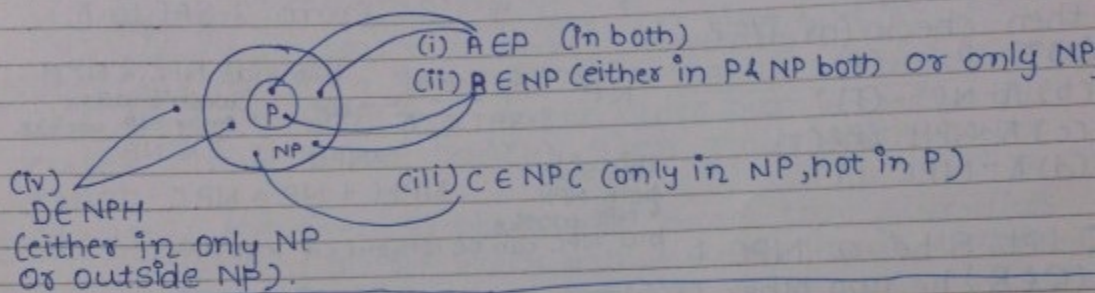 (i) A ∈ P (In both)
(ii) B ∈ NP (either in P & NP both or only NP
P
NP
(iii) C ∈ NPC (only in NP, not in P)
(iv)
D ∈ NPH
(either in only NP
or outside NP).